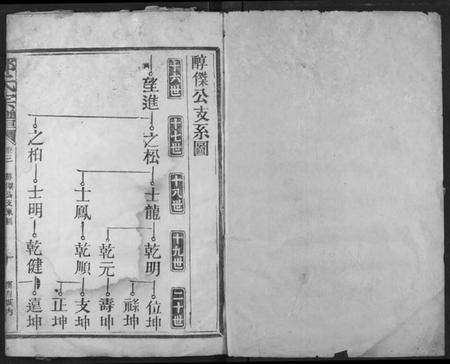 醇傑公支系圖
十六世
十七世
十八世
十九世
二十世
望進
之松
之柏
士龍
士鳳
士明
乾明
乾元
乾順
乾健
位坤
祿坤
壽坤
支坤
正坤
遠坤
氏宗譜
卷三